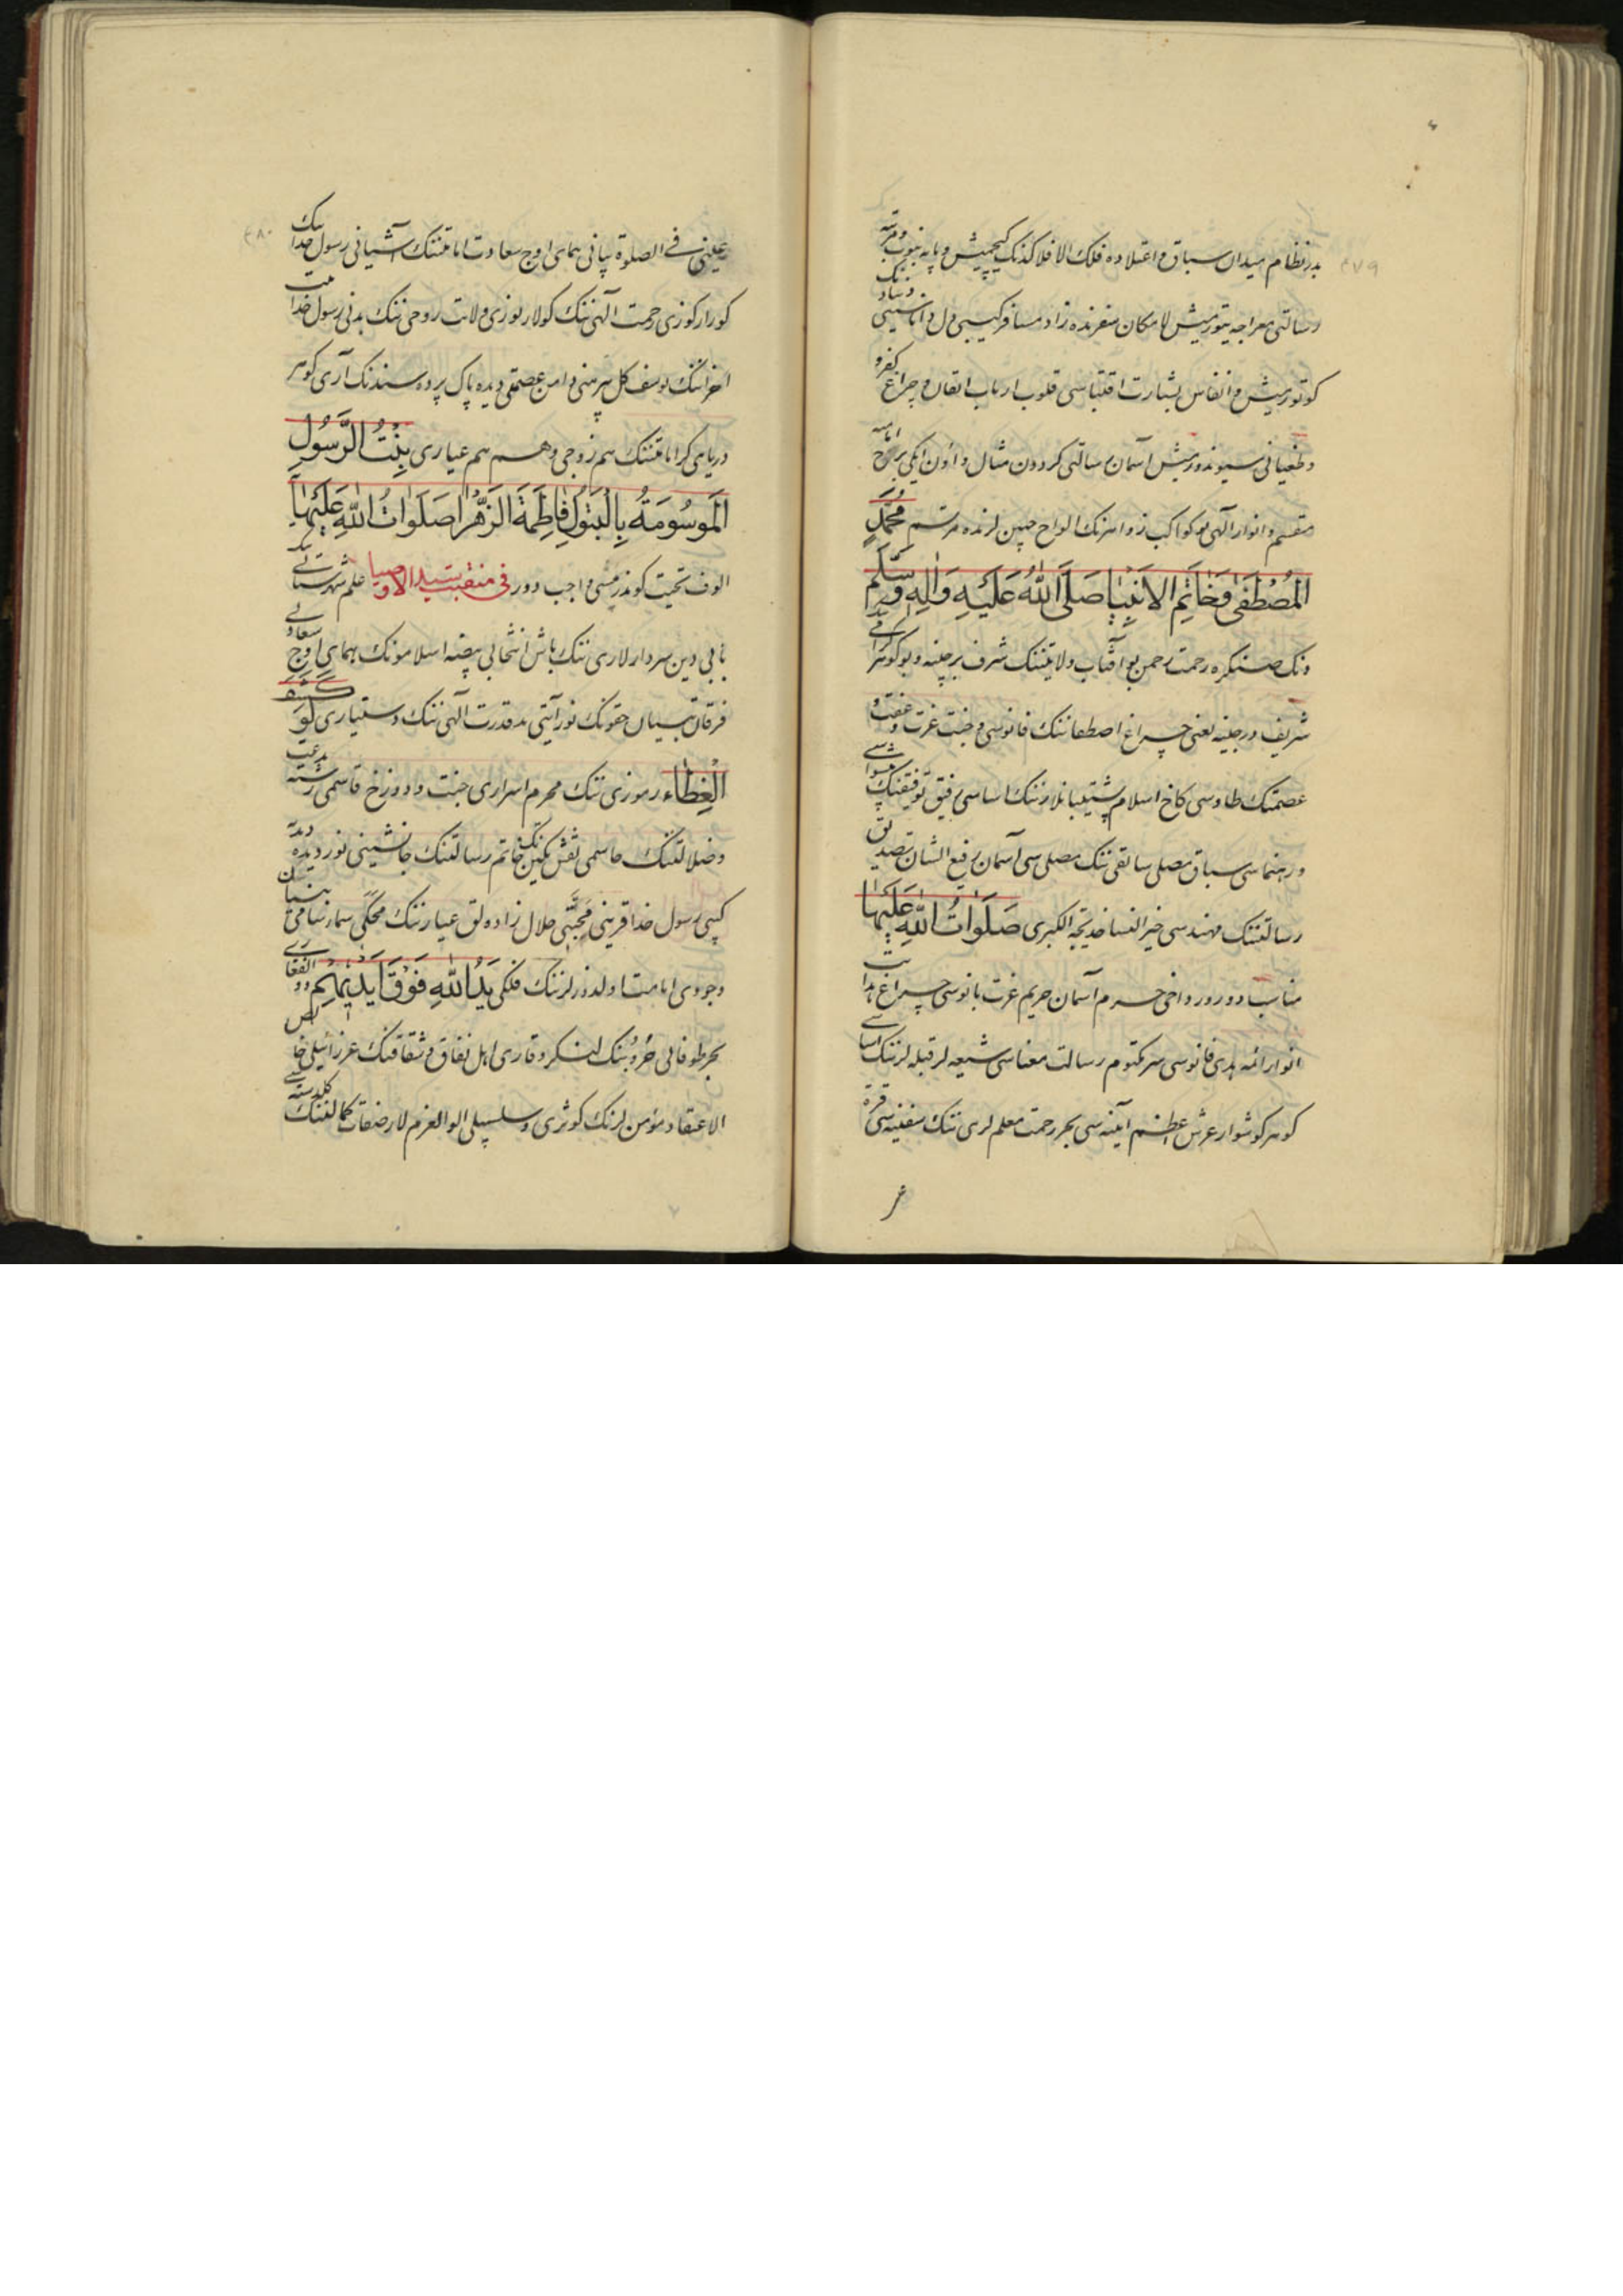 بدر نظام میدان سباق و اعتلاده فلک الافلاکدنک کیچمیش و پایه نبوت و مرتبه
رسالتی معراجه یتورمیش لامکان سفرنده زاد مسافر کیبی
کوتورمیش و انفاس بشارت اقتباسی قلوب ارباب اتقان و چراغ کفر و
و طغیانی سیوندورمیش آسمان رسالتی کردون مثال و اون ایکی برج امامه
منقسم و انوار الهی بو کواکب زواهرنک الواح جبین لرنده مرتسم مُحَمَّدٍ
المُصْطَفٰی وَخَاتَمِ الاَنْبِیَاءِ صَلَّی اللّٰهُ عَلَیْهِ وَاٰلِهِ وَسَلَّم
ونک صنکره رحمت رحمن بو آفتاب ولایتننک شرف برجینه و بو کوهر
شریف درجینه یعنی چراغ اصطفاننک فانوسی و جنت عزت و عفت و
عصمتنک طاوسی کاخ اسلام پشتیبانلارننک اساسی رفیق توفیقنک پیشواسی
و رهنماسی سباق مصلی سابقی ننک مصلی سی آسمان رفیع الشان تصدیق
رسالتننک مهندسی خیر النسا خدیجة الکبری صَلَوَاتُ اللّٰهِ عَلَیْهَا
مناسب دورور داخی حرم آسمان حریم عزت بانوسی چراغ هدایت
انوار ائمه هدی فانوسی سر مکتوم رسالت معناسی شیعه لر قبله لرننک اساسی
کوهر کوشوار عرش اعظم آیینه سی بحر رحمت معلم لری ننک سفینه سی قرة
عینی فی الصلوة بیانی همای اوج سعادت امامتننک آشیانی رسول خدانینک
کورار کوزی رحمت الهی ننک کولار یوزی ولایت روحی ننک بدنی رسول خدا
یوسف کل پیرهنی دامن عصمتی دیده پاک پرده سندنک آری کوهر
دریای امامتننک هم زوجی و هم هم عیاری بِنْتُ الرَّسُولِ
المَوسُومَةُ بِالْبَتُولِ فَاطِمَةَ الزَّهْرَا صَلَوَاتُ اللّٰهِ عَلَیْهَا
الوف تحیت کوندرمسی واجب دور فی منقبت سید الاوصیا علم شهرستانی
بابی دین سردارلاری ننک باش انتخابی بیضه اسلامونک همای اوج سعادتی
فرقان تبیان حقونک نور آیتی ید قدرت الهی ننک دستیاری لَوْ کُشِفَ
الْغِطَاء رموزی ننک محرم اسراری جنت و دوزخ قاسمی رشته بدعت
و ضلالتننک حاسمی نقش نکین خاتم رسالتننک جانشینی نور دیده
کیبی رسول خدا قرینی مُحِبّی حلال زاده لق عیارننک محکی
وجودی امامت اولدوزلرننک فلکی یَدُ اللّٰهِ فَوْقَ اَیْدِیْهِمْ ذو الفقاری
بحر طوفانی حروبنک لنکر و قاری اهل نفاق و شقاقنک عزرائیلی خالص
الاعتقاد مؤمن لرنک کوثری و سلسبیلی اولو العزم لار صفات کمالتننک کلدسته سی